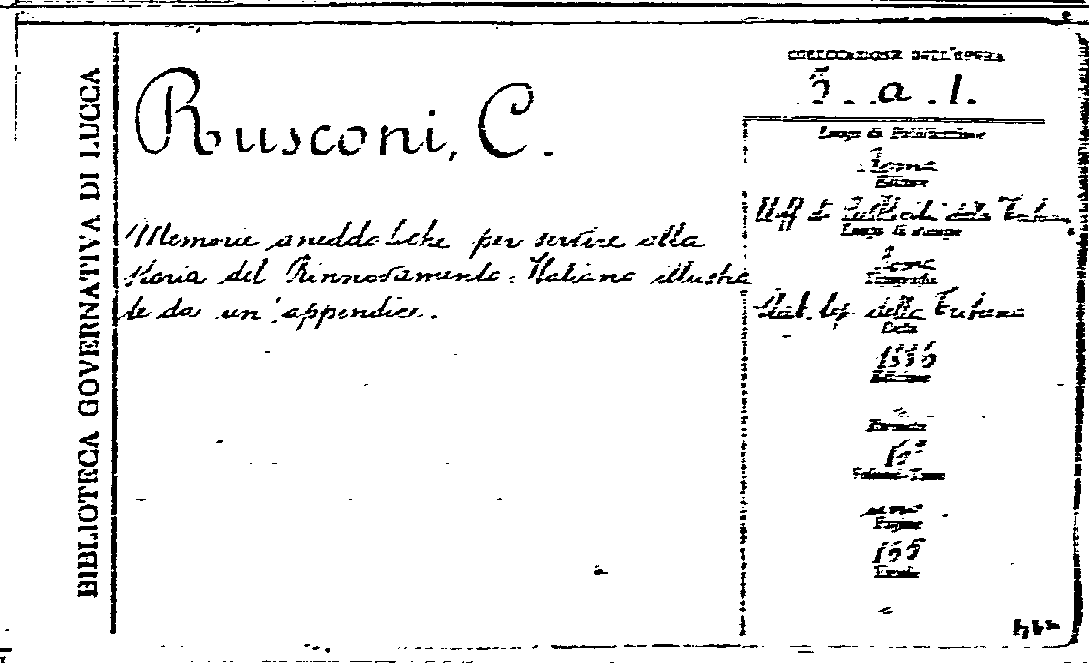 BIBLIOTECA GOVERNATIVA DI LUCCA
Rusconi, C.
Memorie aneddotiche per servire alla
storia del Rinnovamento Italiano illustra
te da un' appendice.
COLLOCAZIONE DELL'OPERA
5. a. 1.
Luogo di Pubblicazione
Roma
Editore
Uff. di Pubblicità della Tribuna
Luogo di stampa
Roma
Tipografia
Stab. tip. della Tribuna
Data
Edizione
Formato
16°
Volumi-Tomi
uno
Pagine
Tavole